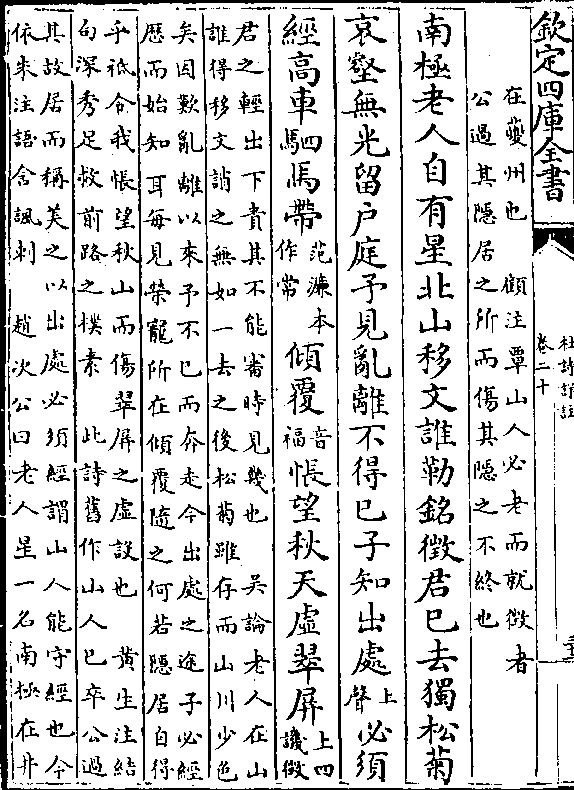 欽定四庫全書
杜詩詳註
卷二十
在夔州也　顧注覃山人必老而就徵者
公過其隱居之所而傷其隱之不終也
南極老人自有星北山移文誰勒銘徵君已去獨松菊
哀壑無光留户庭予見亂離不得已子知出處上聲必須
經高車駟馬帶范濂本作常傾覆音福悵望秋天虛翠屏上四譏徵
君之輕出下責其不能審時見幾也　吳論老人在山
誰得移文誚之無如一去之後松菊雖存而山川少色
矣因歎亂離以來予不已而奔走今出處之途子必經
歷而始知耳每見榮寵所在傾覆隨之何若隱居自得
乎祗令我悵望秋山而傷翠屏之虛設也　黄生注結
句深秀足救前路之樸素　此詩舊作山人已卒公過
其故居而稱美之以出處必須經謂山人能守經也今
依朱注語含諷刺　趙次公曰老人星一名南極在井